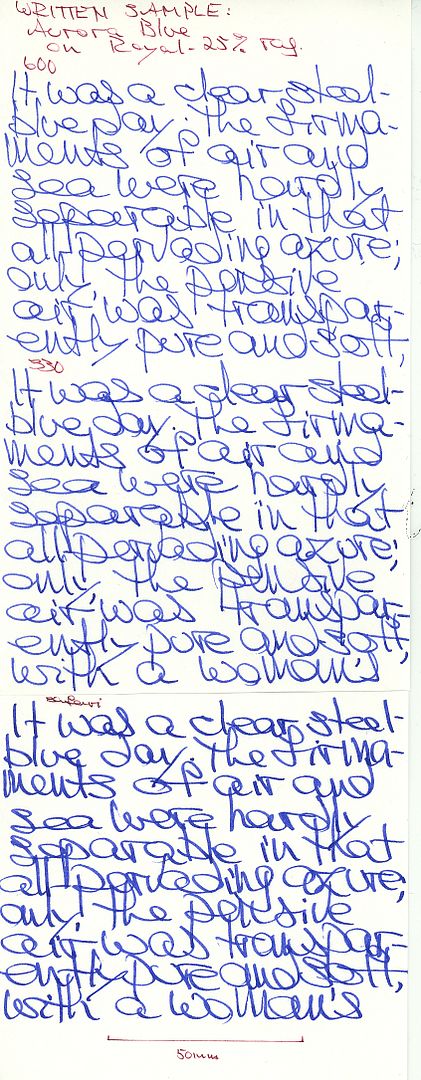 WRITTEN SAMPLE:
Aurora Blue
on Royal - 25% rag.
600
It was a clear steel-
blue day. The firma-
ments of air and
sea were hardly
separable in that
all pervading azure;
only, the pensive
air was transpar-
ently pure and soft,
330
It was a clear steel-
blue day. The firma-
ments of air and
sea were hardly
separable in that
all pervading azure;
only, the pensive
air was transpar-
ently pure and soft,
with a woman's
It was a clear steel-
blue day. The firma-
ments of air and
sea were hardly
separable in that
all pervading azure;
only, the pensive
air was transpar-
ently pure and soft,
with a woman's
50mm